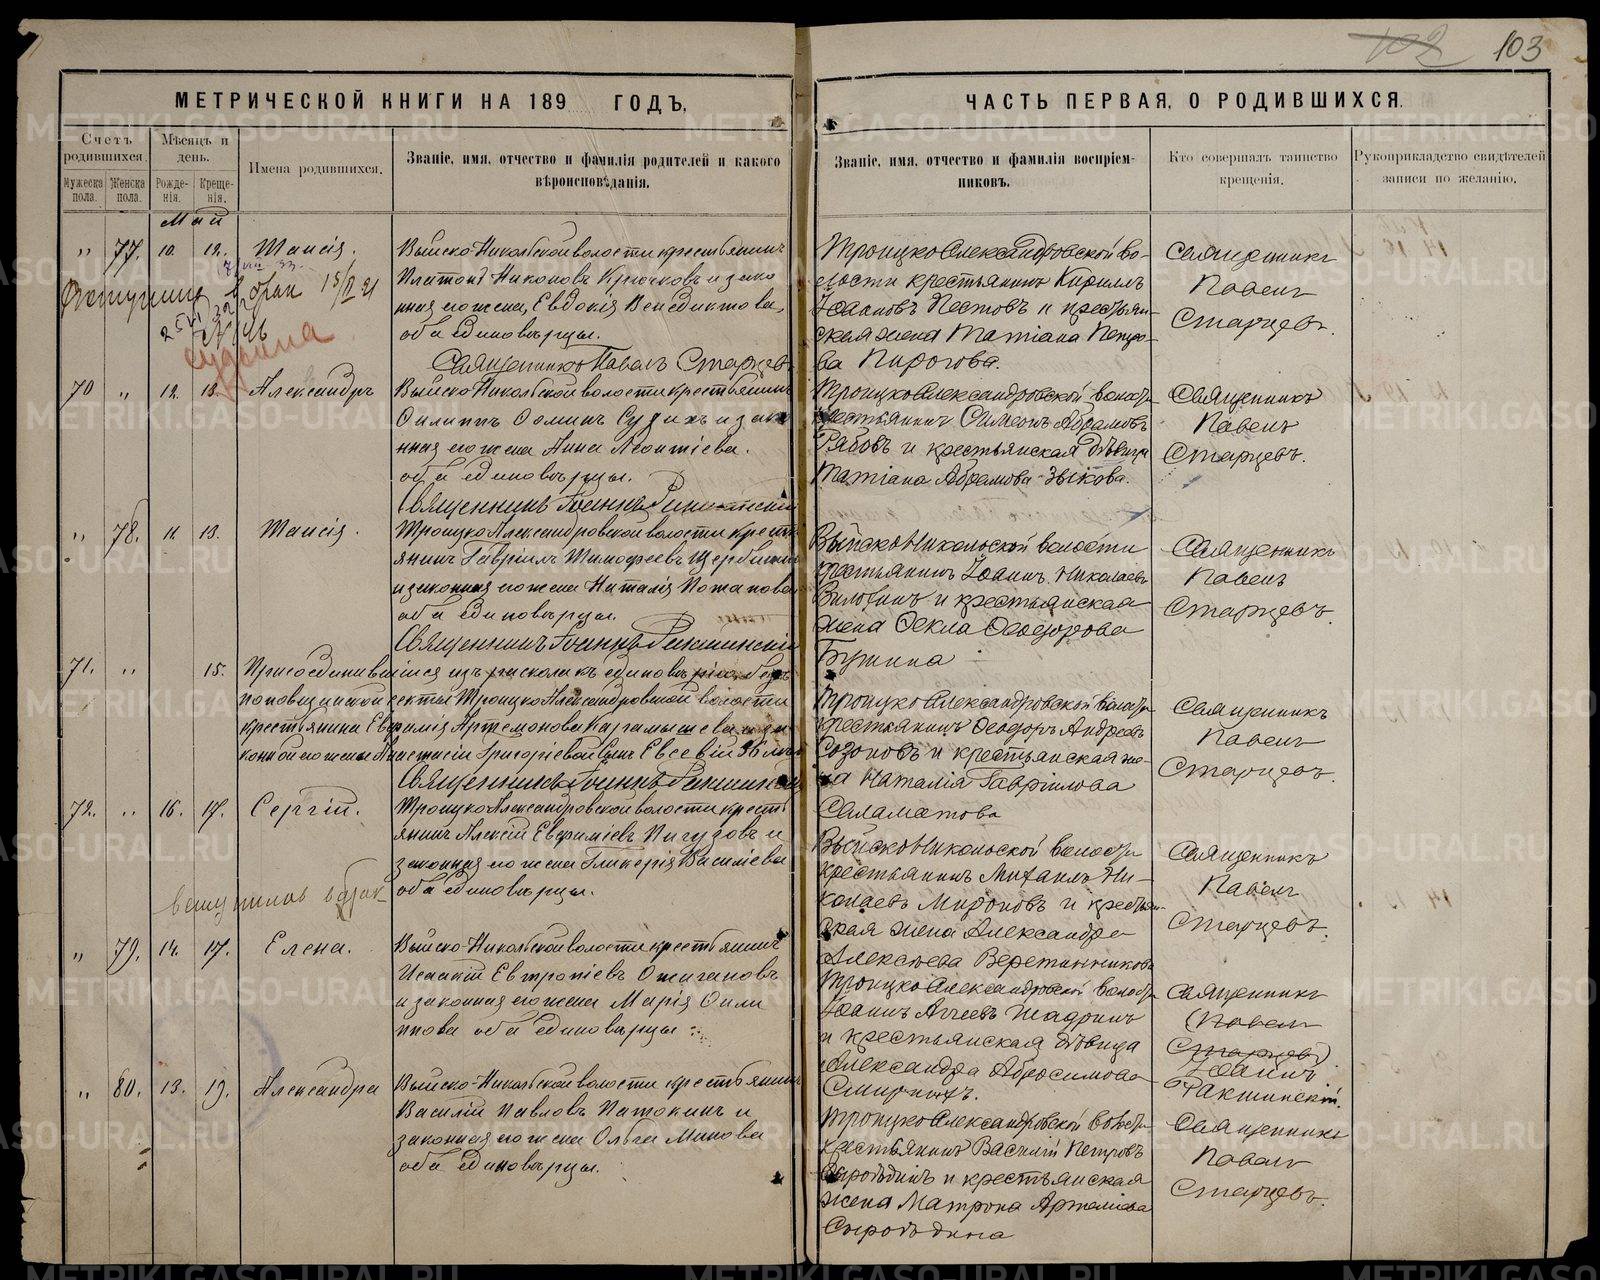 102 103
МЕТРИЧЕСКОЙ КНИГИ НА 189 ГОДЪ,
ЧАСТЬ ПЕРВАЯ, О РОДИВШИХСЯ.
Счетъ родившихся.
Мужеска пола.
Женска пола.
Мѣсяцъ и день.
Рожденія.
Крещенія.
Имена родившихся.
Званіе, имя, отчество и фамилія родителей и какого вѣроисповѣданія.
Званіе, имя, отчество и фамилія воспріемниковъ.
Кто совершалъ таинство крещенія.
Рукоприкладство свидѣтелей записи по желанію.
Май
" 77. 10. 12. Таисія.
Выйско-Никольской волости крестьянинъ
Платонъ Никоновъ Крючковъ и зако
нная его жена, Евдокія Венедиктова,
оба единовѣрцы.
Священникъ Павелъ Старцевъ
Троицко Александровской во-
лости крестьянинъ Кириллъ
Іоанновъ Пестовъ и крестьян-
ская жена Татіана Петро-
ва Пирогова.
Священникъ
Павелъ
Старцевъ.
15/II 21
70 " 12. 13. Александръ
Выйско-Никольской волости крестьянинъ
Филиппъ Ѳоминъ и зако
нная его жена Анна Леонтіева.
оба единовѣрцы.
Священникъ Іоаннъ
Троицко Александровской волости
крестьянинъ Симеонъ Абрамовъ
Рябовъ и крестьянская дѣвица
Татіана Абрамова Зыкова.
Священникъ
Павелъ
Старцевъ.
" 78. 11. 13. Таисія.
Троицко Александровской волости кресть
янинъ Гавріилъ Тимофеевъ
и законная его жена Наталія Потапова
оба единовѣрцы.
Священникъ Іоаннъ
Выйско Никольской волости
крестьянинъ Іоаннъ Николаевъ
и крестьянская
жена Ѳекла Ѳеодорова
Священникъ
Павелъ
Старцевъ.
71. " 15. Присоединившійся изъ раскола къ единовѣрію, безъ
поповщинской секты Троицко Александровской волости
крестьянина Евфимія Артемонова и за
конной его жены Анастасіи Григоріевой сынъ Евсевій
Священникъ Іоаннъ
Троицко Александровской волости
крестьянинъ Ѳеодоръ Андреевъ
Созоновъ и крестьянская же-
на Наталія Гавріилова
Саламатова
Священникъ
Павелъ
Старцевъ.
72. " 16. 17. Сергій.
Троицко Александровской волости кресть
янинъ Алексій Евфиміевъ Пигузовъ и
законная его жена Гликерія Василіева
оба единовѣрцы.
Выйско Никольской волости
крестьянинъ Михаилъ Ни-
колаевъ Мироновъ и крестьян-
ская жена Александра
Алексѣева Веретенникова
Священникъ
Павелъ
Старцевъ.
" 79. 14. 17. Елена.
Выйско-Никольской волости крестьянинъ
Исаакій Евтропіевъ Ожигановъ
и законная его жена Марія Фили
ппова оба единовѣрцы.
Троицко Александровской волости
Іоаннъ Шадринъ
и крестьянская дѣвица
Александра Абросимова
Смирныхъ.
Священникъ
(Павелъ
Старцевъ)
Іоаннъ
" 80. 13. 19. Александра
Выйско-Никольской волости крестьянинъ
Василій Павловъ Патокинъ и
законная его жена Ольга Минова
оба единовѣрцы.
Троицко Александровской волости
крестьянинъ Василій Петровъ
Сыроѣдинъ и крестьянская
жена Матрона Артеміева
Сыроѣдина
Священникъ
Павелъ
Старцевъ.
METRIKI.GASO-URAL.RU